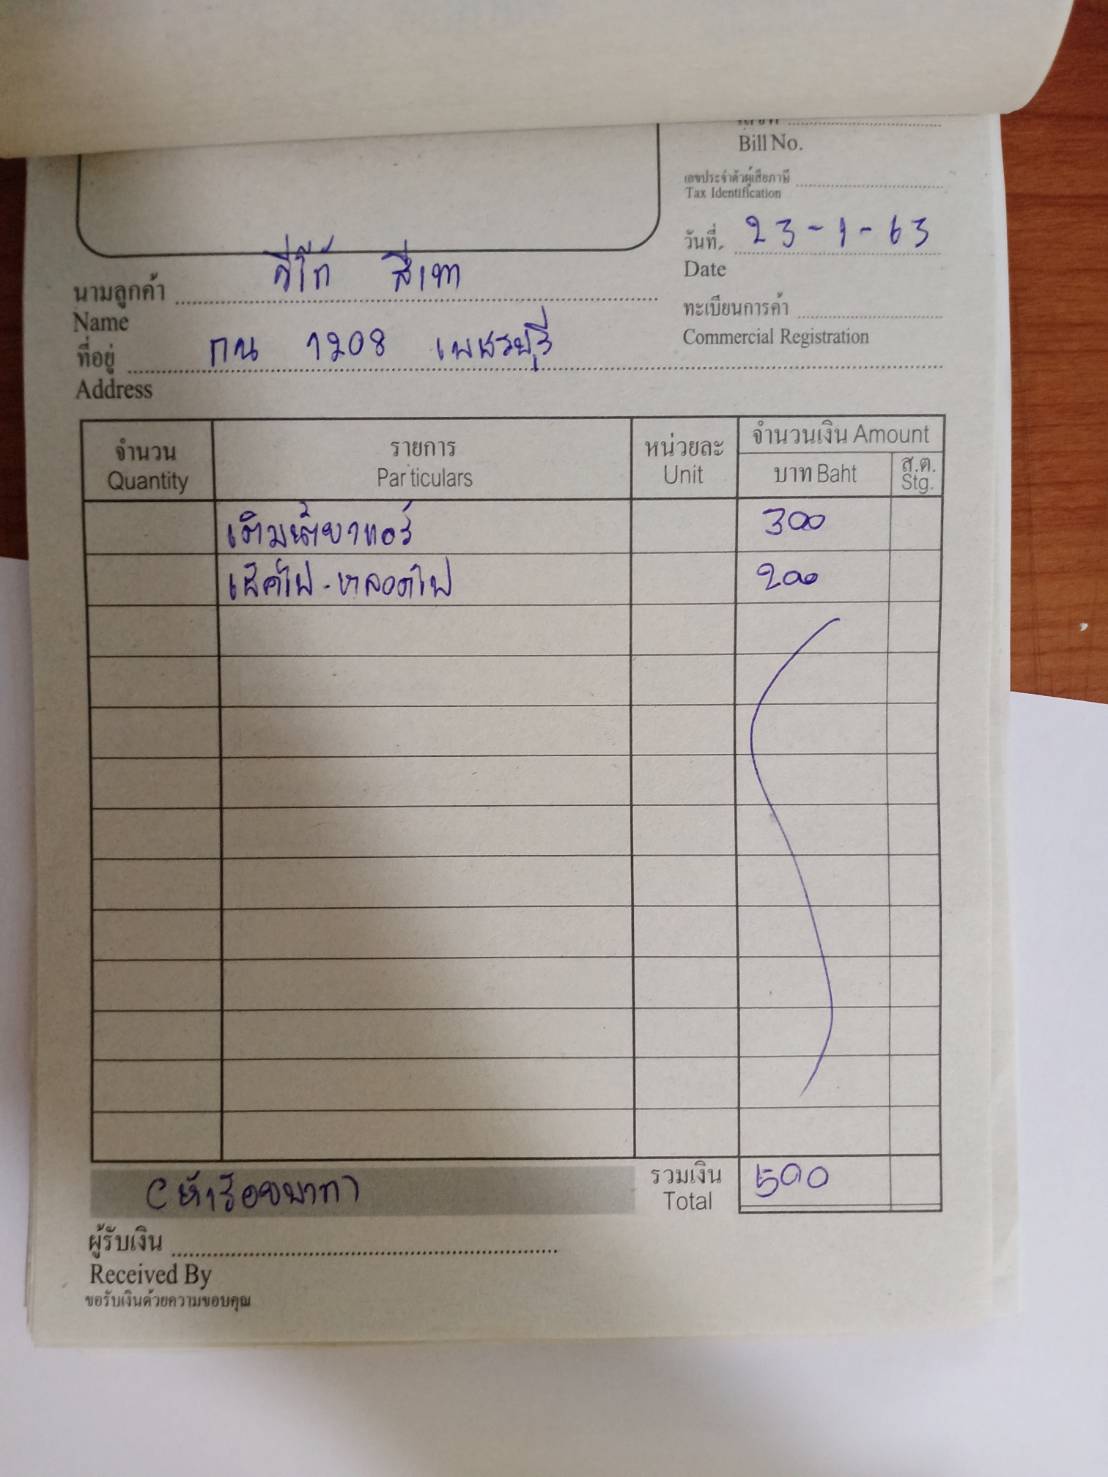 Bill No.
เลขประจำตัวผู้เสียภาษี
Tax Identification
วันที่. 23-1-63
Date
นามลูกค้า วีโก้ สีเทา
Name
ทะเบียนการค้า
Commercial Registration
ที่อยู่ กน 1208 เพชรบุรี
Address
จำนวน รายการ หน่วยละ จำนวนเงิน Amount
Quantity Particulars Unit บาท Baht ส.ต. Stg.
เติมน้ำยาแอร์ 300
เช็คไฟ-หลอดไฟ 200
(ห้าร้อยบาท) รวมเงิน 500
Total
ผู้รับเงิน
Received By
ขอรับเงินด้วยความขอบคุณ